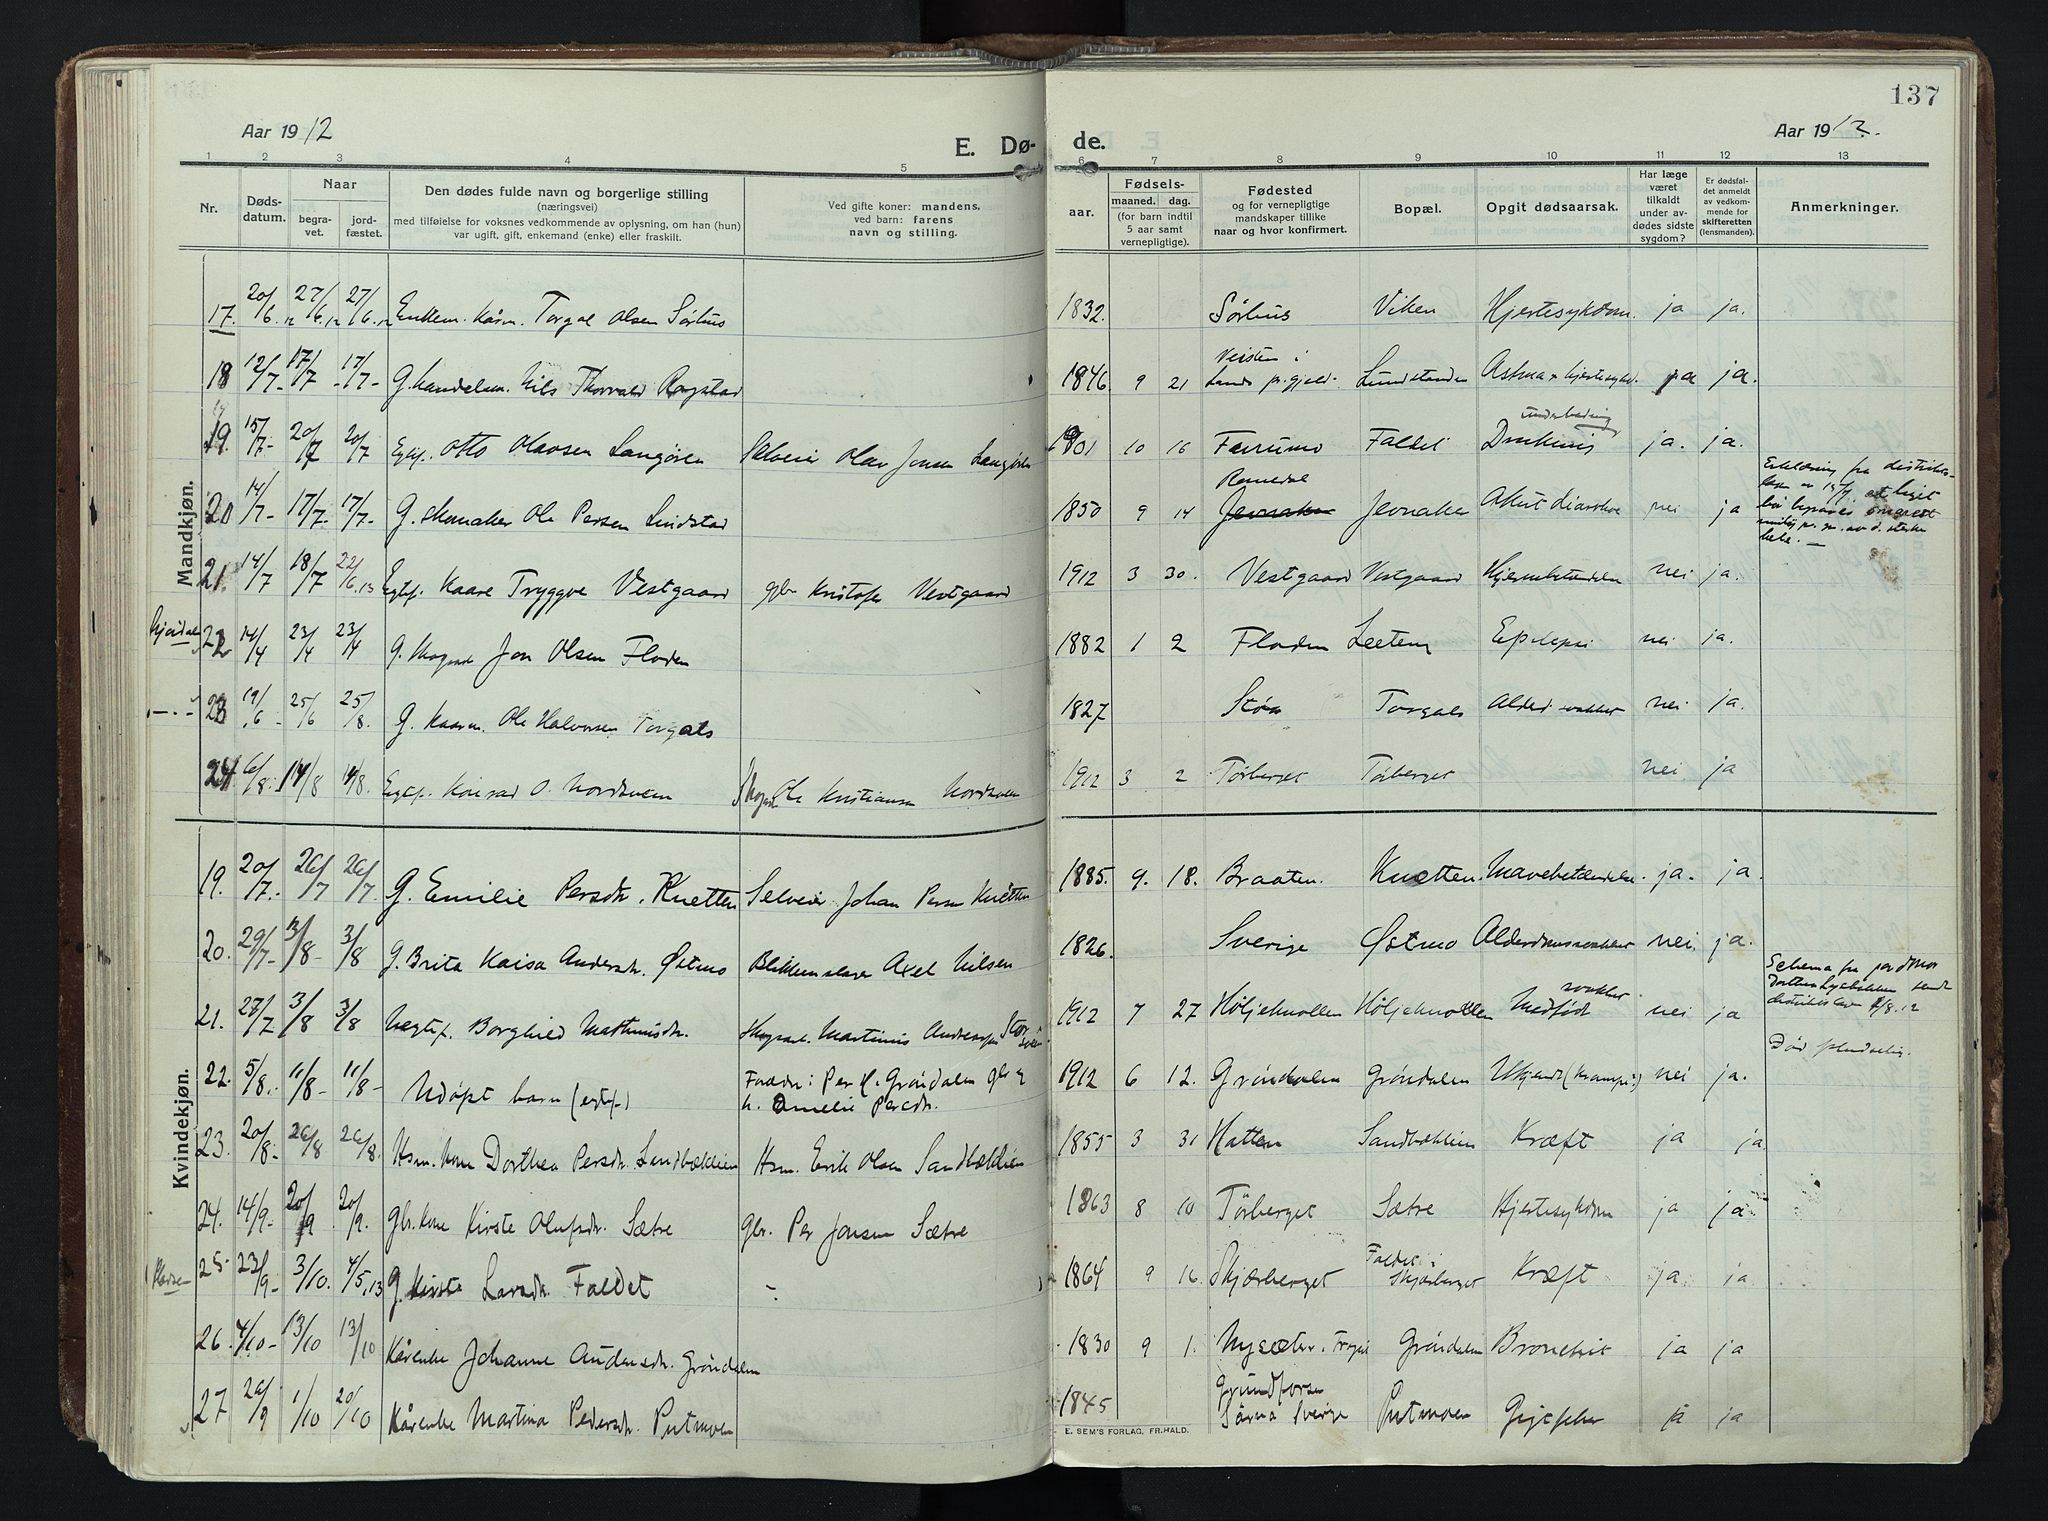 137
Aar 1912
E. Dø-
de.
Aar 1912.
1 2 3 4 5 6 7 8 9 10 11 12 13
Nr.
Døds-
datum.
Naar
begra-
vet.
jord-
fæstet.
Den dødes fulde navn og borgerlige stilling
(næringsvei)
med tilføielse for voksnes vedkommende av oplysning, om han (hun)
var ugift, gift, enkemand (enke) eller fraskilt.
Ved gifte koner: mandens,
ved barn: farens
navn og stilling.
Fødsels-
aar. maaned. dag.
(for barn indtil
5 aar samt
vernepligtige).
Fødested
og for vernepligtige
mandskaper tillike
naar og hvor konfirmert.
Bopæl.
Opgit dødsaarsak.
Har læge
været
tilkaldt
under av-
dødes sidste
sygdom?
Er dødsfal-
det anmeldt
av vedkom-
mende for
skifteretten
(lensmanden).
Anmerkninger.
Mandkjøn.
17. 20/6.12 27/6.12 27/6.12 Enkem. Kårm. Torgal Olsen Sørhus 1832. Sørhus Viken Hjertesykdom. ja ja.
18 12/7- 17/7 17/7- G. Handelsm. Nils Thorvald Rogstad 1846. 9 21 Lands pr.gjeld. Lundstranden Astma + hjertesykd. ja ja.
19. 15/7- 20/7 20/7 Egtef. Otto Olavsen Langøren Selveier Olav Jonsen Langøren 1901 10 16 Faldet ja. ja.
20 14/7- 17/7- 17/7- G. Skomaker Ole Persen Lindstad 1850 9 14 Romedal Jevnaker Jevnaker Akut diarrhoe nei ja
21. 14/7 18/7 22/6.13 Egtef. Kaare Tryggve Vestgaard gbr Kristofer Vestgaard 1912 3 30. Vestgaard Vestgaard Hjernebetændelse nei ja.
22 14/4 23/4 23/4 G. Skogsarb Jon Olsen Floden 1882 1 2 Floden Leeteng Epilepsi nei ja.
23 19/6- 25/6 25/8. G. Kaarm. Ole Halvorsen Torgals 1827 Støa Torgals nei ja.
24. 6/8. 14/8 14/8. Egtef. Konrad O. Nordhuen Skogsarb Ole Kristiansen Nordhuen 1912 3 2 Tørberget Tørberget nei ja
Kvindekjøn.
19. 20/7. 26/7 26/7 G. Emilie Persdtr. Knetten Selveier Johan Persen Knetten 1885. 9. 18. Braaten. Knetten. Mavebetændelse. ja. ja.
20. 29/7- 3/8- 3/8 G. Brita Kaisa Andersdtr. Østmo Blikkenslager Axel Nilsen 1826. Sverige Østmo nei. ja.
21. 27/7 3/8 3/8 Uegtef. Borghild Martinusdtr. Skogsarb. Martinus Andreassen 1912 7 27 Høljeknollen Høljeknollen Medfødt svakhet nei ja
Død pludselig.
22. 5/8. 11/8- 11/8- Udøpt barn (egtef.) Foræld: Per H. Grøndalen gbr og
h. Amelie Persdtr. 1912 6 12. Grøndalen Grøndalen Ukjendt (krampe?) nei ja.
23. 20/8- 26/8 26/8. Hsm. kone Dorthea Persdtr. Sandbæklien Hsm. Erik Olsen Sandbæklien 1855 3 31 Hatten Sandbæklien Kræft ja ja.
24. 14/9- 20/9 20/9. gbr. kone Kirste Olufsdtr. Sætre gbr. Per Jonsen Sætre 1863 8 10 Tørberget Sætre Hjertesykdom ja ja
25- 23/9- 3/10. 4/5.13 G. Kirste Larsdtr. Faldet - 1864 9 16 Skjærberget Faldet i Skjærberget Kræft ja. ja
26. 4/10- 13/10 13/10 Kårenke Johanne Andersdtr. Grøndalen 1830 9 1. Nysæter. Trysil Grøndalen Bronchit ja ja
27 26/9 1/10 20/10 Kårenke Martina Pedersdtr. Putmoen 1845 Grundforsen
Särna Sverige Putmoen ja ja
E. SEM'S FORLAG, FR.HALD.